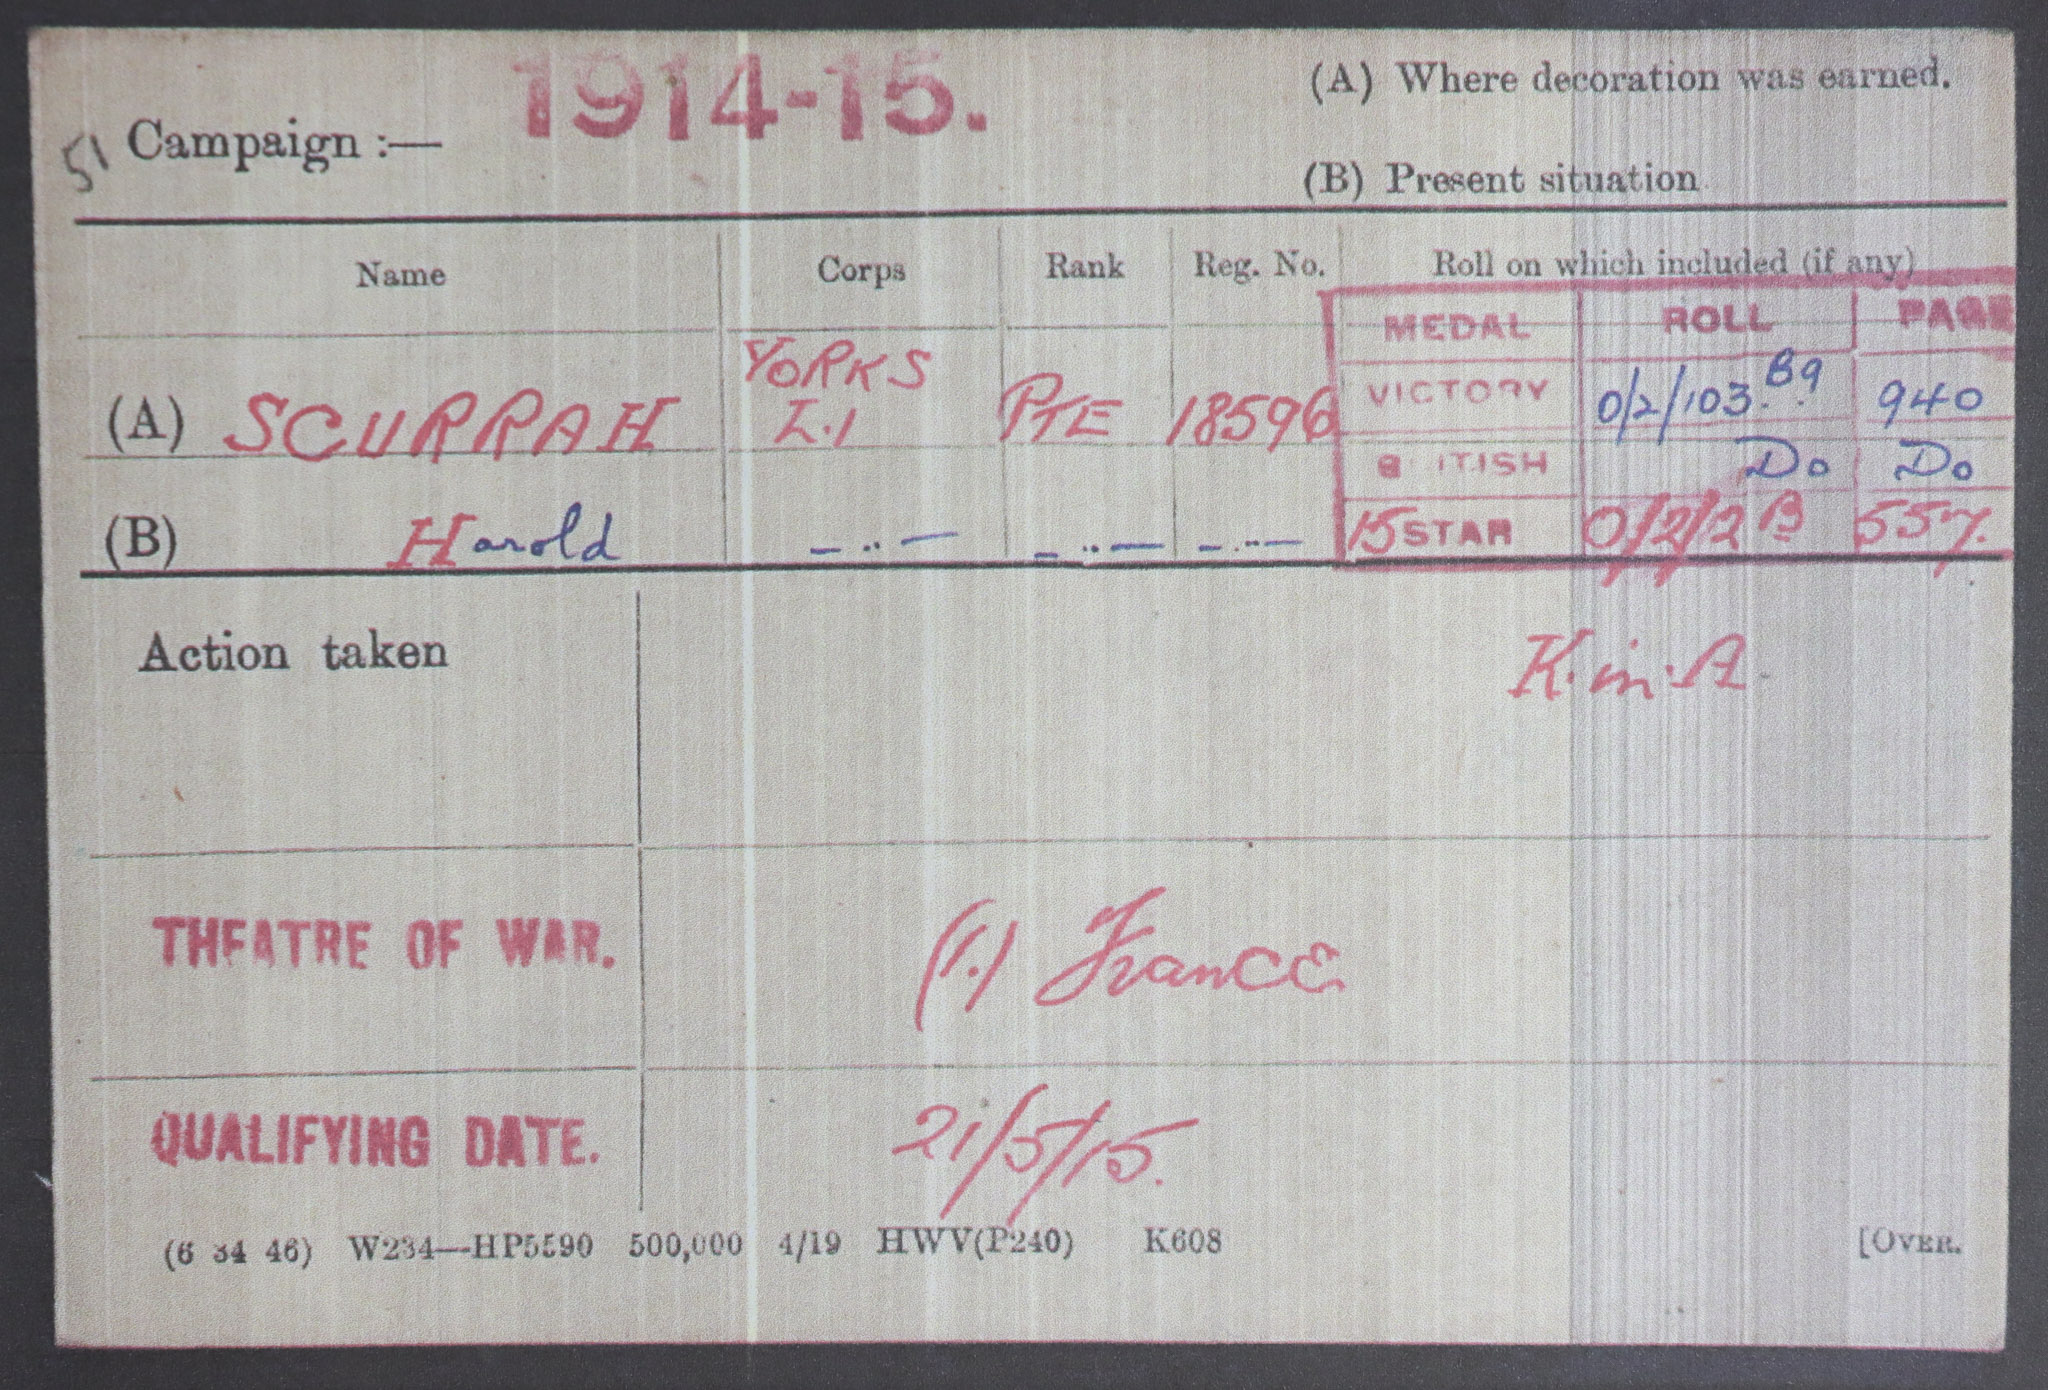 1914-15.
(A) Where decoration was earned.
51 Campaign :—
(B) Present situation
Name Corps Rank Reg. No. Roll on which included (if any)
MEDAL ROLL PAGE
(A) SCURRAH YORKS L.I PTE 18596 VICTORY 0/2/103.B9 940
BRITISH Do Do
(B) Harold — " — — " — — " — 15 STAR 0/2/2 B 557.
Action taken
K. in. A.
THEATRE OF WAR. (1.) France
QUALIFYING DATE. 21/5/15.
(6 34 46) W234—HP5590 500,000 4/19 HWV(P240) K608 [OVER.